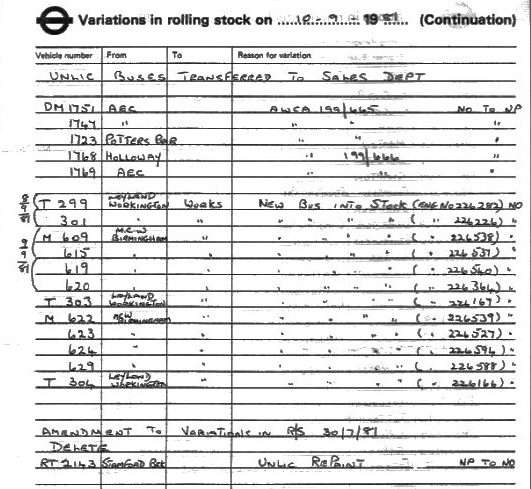 Variations in rolling stock on 10-9- 1981 (Continuation)
Vehicle number From To Reason for variation
UNLIC BUSES TRANSFERRED TO SALES DEPT
DM 1751 AEC AWCA 199/665 NO TO NP
1767 " " " "
1723 POTTERS BAR " " "
1768 HOLLOWAY " 199/666 "
1769 AEC " " "
T 299 LEYLAND WORKINGTON WORKS NEW BUS INTO STOCK (ENG NO 226282) NO
301 " " " " " " ( " 226226) "
M 609 M.C.W BIRMINGHAM " " " " " ( " 226538) "
615 " " " " " " ( " 226537) "
619 " " " " " " ( " 226540) "
620 " " " " " " ( " 226364) "
T 303 LEYLAND WORKINGTON " " " " " ( " 226167) "
M 622 MCW BIRMINGHAM " " " " " ( " 226539) "
623 " " " " " " ( " 226527) "
624 " " " " " " ( " 226594) "
629 " " " " " " ( " 226588) "
T 304 LEYLAND WORKINGTON " " " " " ( " 226166) "
AMENDMENT TO VARIATIONS IN R/S 30/7/81
DELETE
RT 2143 STAMFORD BRK UNLIC REPAINT NP TO NO